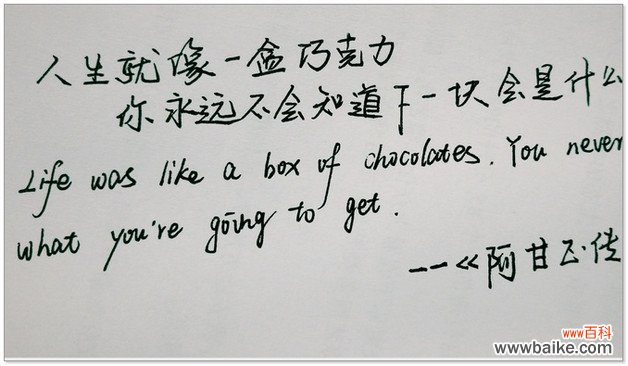 人生就像一盒巧克力
你永远不会知道下一块会是什么
Life was like a box of chocolates. You never
what you're going to get.
——《阿甘正传
www百科
www.baike.com